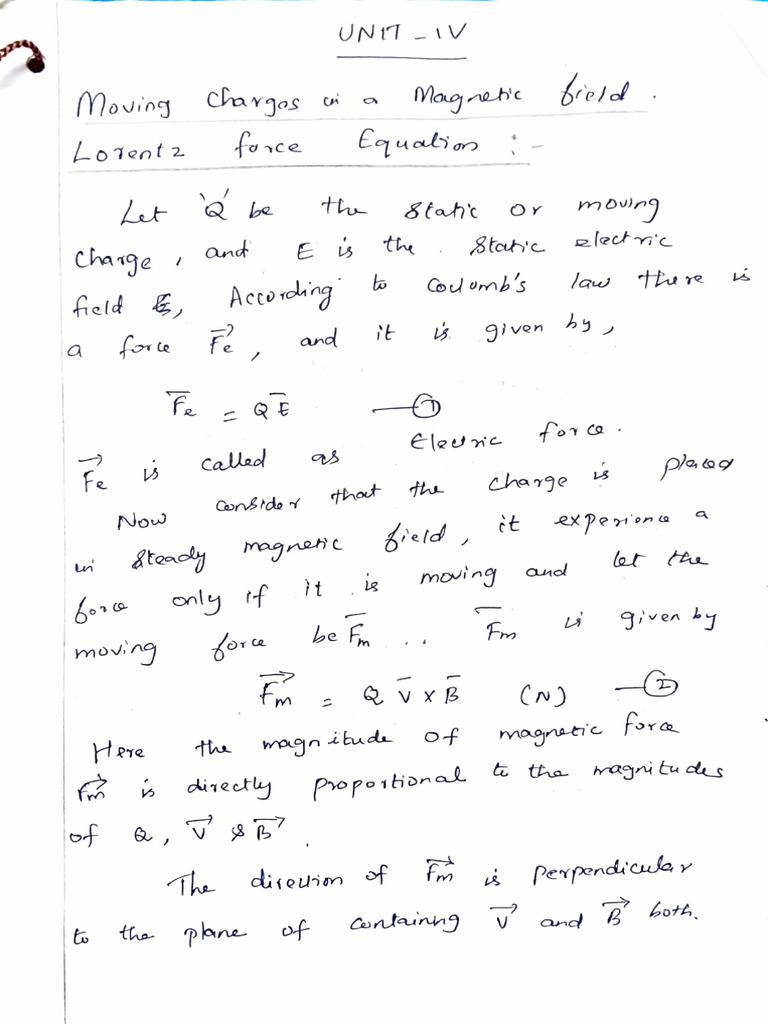 UNIT - IV
Moving Charges in a Magnetic field.
Lorentz force Equation :-
Let 'Q' be the static or moving
charge, and E is the static electric
field, According to Coulomb's law there is
a force F⃗e, and it is given by,
F̅e = QE̅ —①
F⃗e is called as Electric force.
Now consider that the charge is placed
in steady magnetic field, it experience a
force only if it is moving and let the
moving force be F̅m .. F̅m is given by
F⃗m = Q V̅ × B̅ (N) —②
Here the magnitude of magnetic force
F⃗m is directly proportional to the magnitudes
of Q, V⃗ & B⃗.
The direction of F⃗m is perpendicular
to the plane of containing V⃗ and B⃗ both.